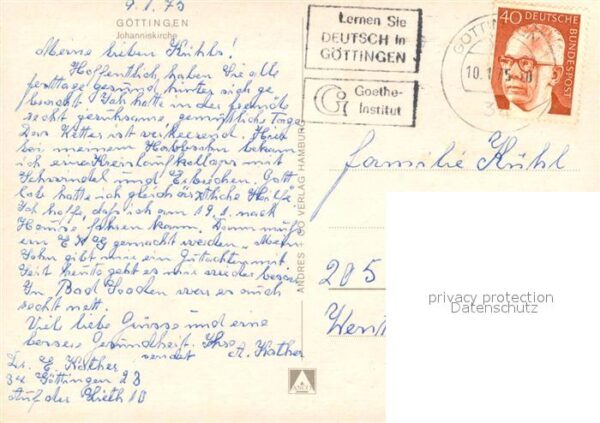 9.1.75
GÖTTINGEN
Johanniskirche
Meine lieben Kühls!
Hoffentlich haben Sie alle
Festtage gesund hinter sich ge
bracht. Ich hatte in der Fremde
recht geruhsame, gemütliche Tage
Das Wetter ist verheerend. Hier
bei meinem Halbbruder bekam
ich einen Kreislaufkollaps mit
Schwindel und Erbrechen. Gott
lob hatte ich gleich ärztliche Hilfe
Ich hoffe, daß ich am 19.1. nach
Hause fahren kann. Dann muß
ein EKG gemacht werden. Mein
Sohn gibt mir ein Gutachten mit
Seit heute geht es mir wieder besser
In Bad Sooden war es auch
recht nett.
Viel liebe Grüsse und eine
bessere Gesundheit. Ihre
sendet A. Kather
Dr. E. Kather
34 Göttingen 23
Auf der Lieth 10
ANDRES + CO VERLAG HAMBURG
ANCO
Lernen Sie
DEUTSCH in
GÖTTINGEN
Goethe-
Institut
GÖTTINGEN
10.1.75
34
40 DEUTSCHE
BUNDESPOST
Familie Kühl
205
Went
privacy protection
Datenschutz